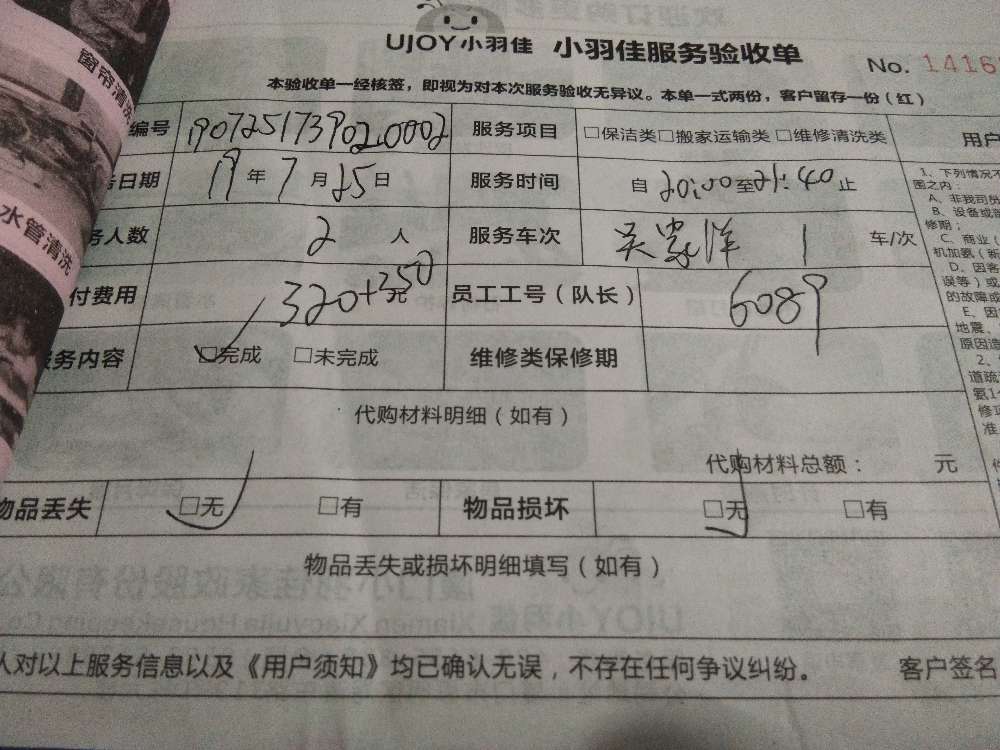 UJOY小羽佳 小羽佳服务验收单
No. 1416
本验收单一经核签，即视为对本次服务验收无异议。本单一式两份，客户留存一份（红）
窗帘清洗
水管清洗
编号 服务项目 □保洁类□搬家运输类□维修清洗类 用户
日期 19年7月25日 服务时间 自20:00至21:40止
务人数 2人 服务车次 1 车/次
付费用 320+350元 员工工号（队长） 6089
服务内容 □完成 □未完成 维修类保修期
代购材料明细（如有）
代购材料总额： 元
物品丢失 □无 □有 物品损坏 □无 □有
物品丢失或损坏明细填写（如有）
人对以上服务信息以及《用户须知》均已确认无误，不存在任何争议纠纷。 客户签名
1、下列情况不
围之内：
A、非我司
B、设备或
修期；
C、商业（
机加氨（新
D、因客
误等）或
的故障或
E、因
地震、
原因造
2、
道疏
氨1
修项
准